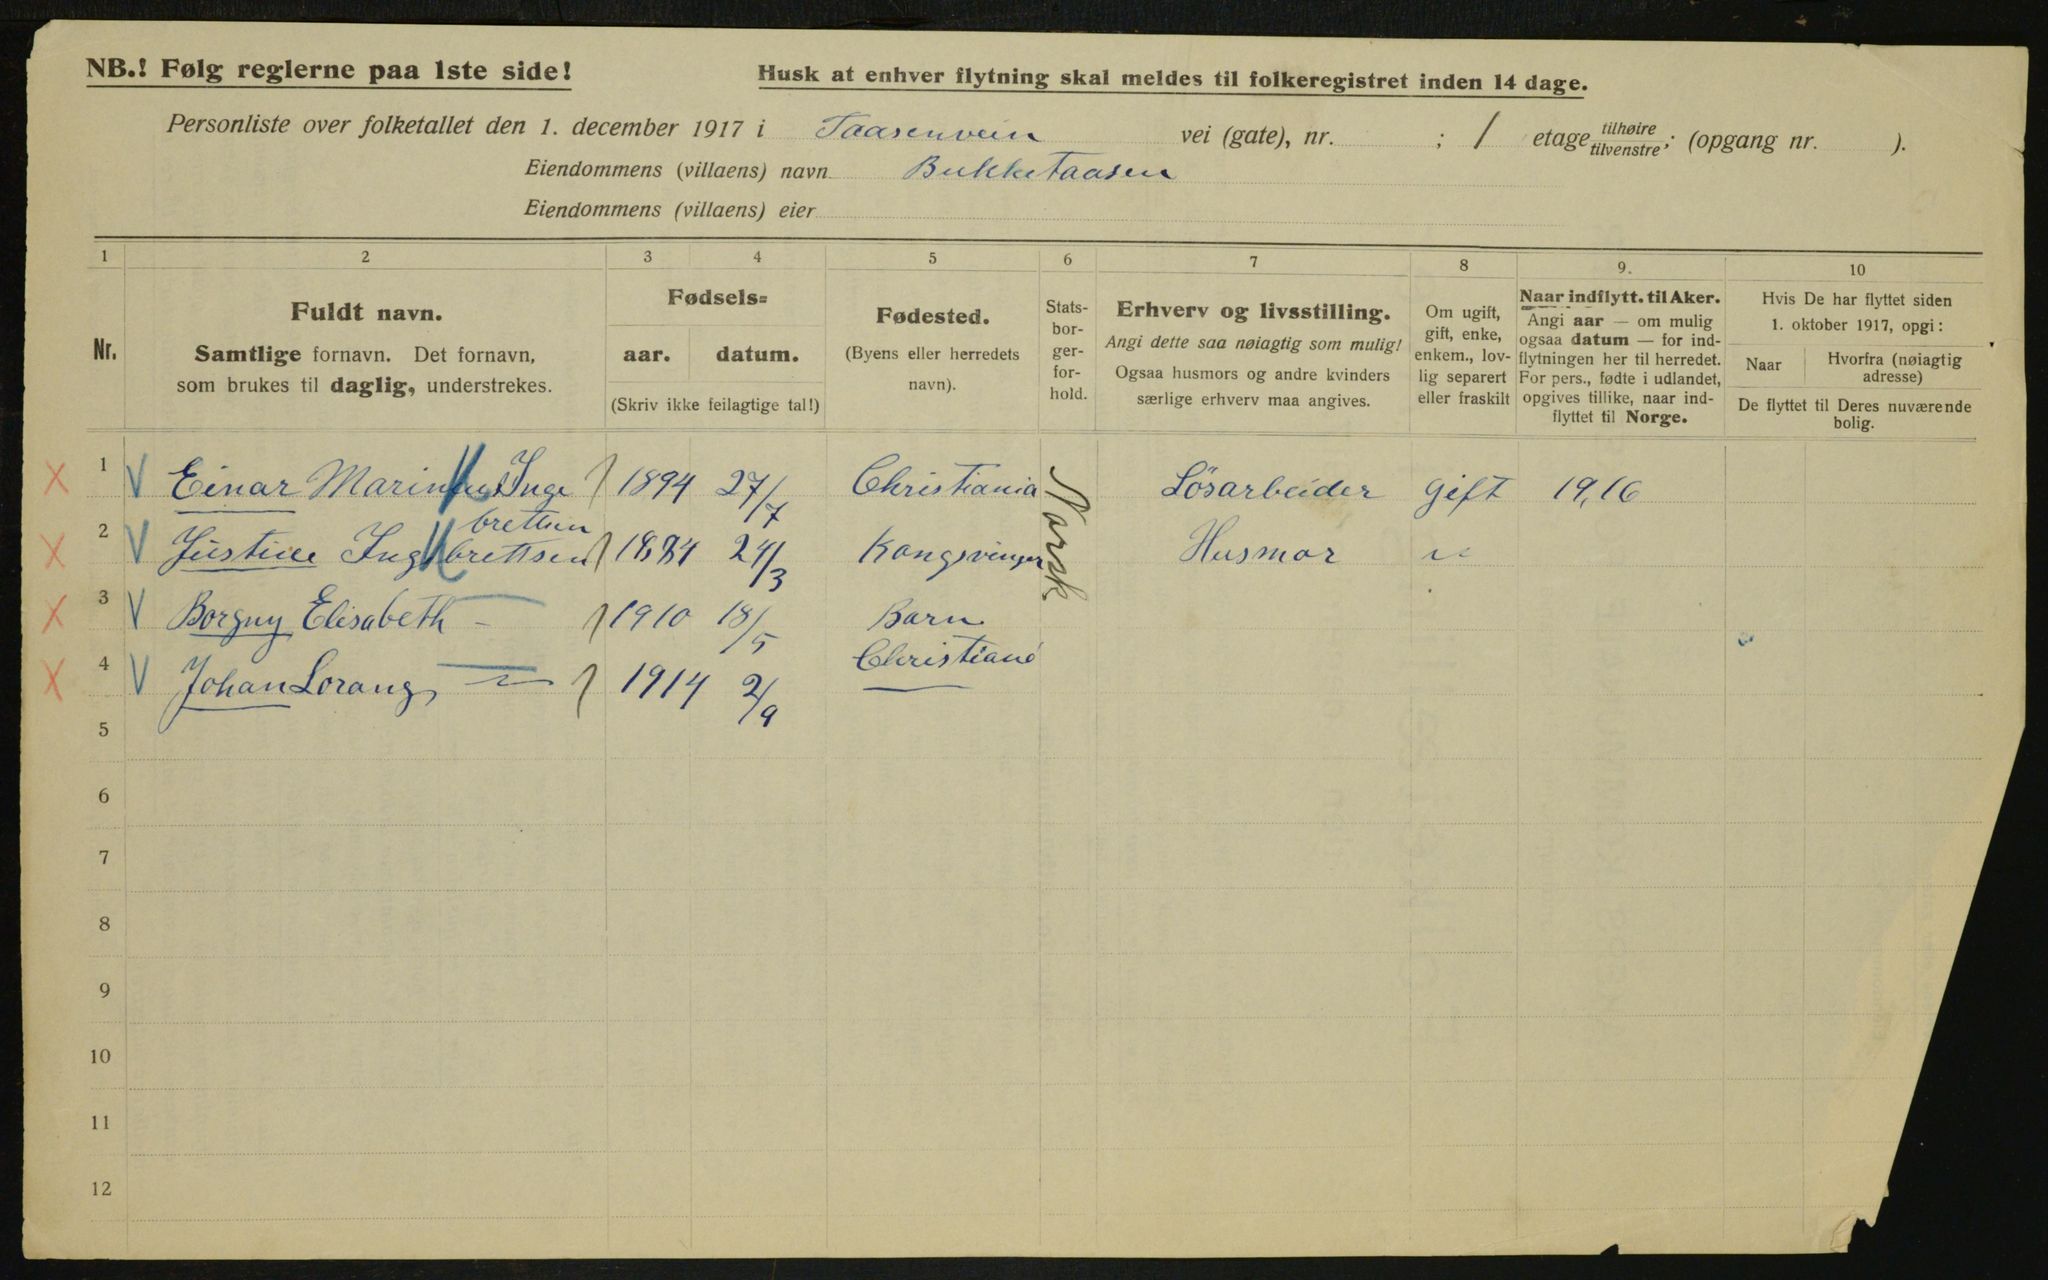 NB.! Følg reglerne paa 1ste side!
Husk at enhver flytning skal meldes til folkeregistret inden 14 dage.
Personliste over folketallet den 1. december 1917 i Taasenvein vei (gate), nr. ; 1 etage tilhøire tilvenstre; (opgang nr. ).
Eiendommens (villaens) navn Bukketaasen
Eiendommens (villaens) eier
1 2 3 4 5 6 7 8 9. 10
Nr.
Fuldt navn.
Samtlige fornavn. Det fornavn,
som brukes til daglig, understrekes.
Fødsels=
aar. datum.
(Skriv ikke feilagtige tal!)
Fødested.
(Byens eller herredets
navn).
Stats-
bor-
ger-
for-
hold.
Erhverv og livsstilling.
Angi dette saa nøiagtig som mulig!
Ogsaa husmors og andre kvinders
særlige erhverv maa angives.
Om ugift,
gift, enke,
enkem., lov-
lig separert
eller fraskilt
Naar indflytt. til Aker.
Angi aar — om mulig
ogsaa datum — for ind-
flytningen her til herredet.
For pers., fødte i udlandet,
opgives tillike, naar ind-
flyttet til Norge.
Hvis De har flyttet siden
1. oktober 1917, opgi:
Naar
Hvorfra (nøiagtig
adresse)
De flyttet til Deres nuværende
bolig.
1 Einar Marin Inge 1894 27/7 Christiania Norsk Lösarbeider gift 19,16
brettsen
2 Justine Ingebrettsen 1884 24/3 Kongsvinger Husmor "
3 Borgny Elisabeth - 1910 18/5 Barn
4 Johan Lorang — 1914 2/9 Christiania
5
6
7
8
9
10
11
12